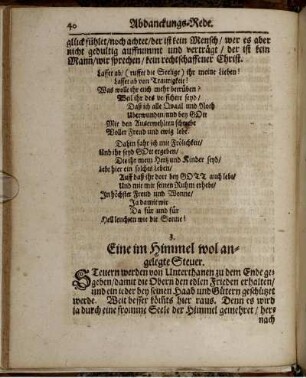 40 Abdanckungs-Rede.
glück fühlet/ noch achtet/ der ist kein Mensch/ wer es aber
nicht gedultig auffnimmt und verträgt/ der ist kein
Mann/ wir sprechen/ kein rechtschaffener Christ.
Lasset ab/ (ruffet die Seelige) ihr meine Lieben!
Lasset ab von Traurigkeit!
Was wolt ihr euch mehr betrüben?
Weil ihr des versichert seyd/
Daß ich alle Qvaal und Noth
Uberwunden/ und bey GOtt
Mit den Außerwehlten schwebe
Voller Freud und ewig lebe.
Dahin fahr ich mit Frölichkeit/
Und ihr seyd GOtt ergeben/
Die ihr mein Hertz und Kinder seyd/
Lebt hier ein solches Leben/
Auff daß ihr dort bey GOTT auch lebt/
Und mit mir seinen Ruhm erhebt/
In höchster Freud und Wonne/
Ja da mit wir
Da für und für
Hell leuchten wie die Sonne!
3.
Eine im Himmel wol an-
gelegte Steuer.
STeuern werden von Unterthanen zu dem Ende ge-
geben/ damit die Obern den edlen Frieden erhalten/
und ein ieder bey seinen Haab und Gütern geschützet
werde. Weit besser kömts hier raus. Denn es wird
ja durch eine fromme Seele der Himmel gemehret/ her-
nach